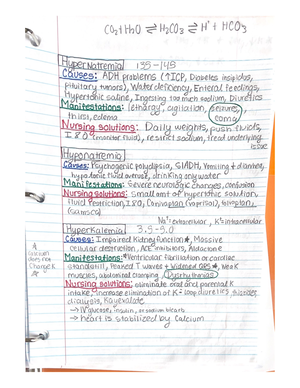 CO2+H2O ⇌ H2CO3 ⇌ H+ + HCO3
Hypernatremia 135-145
Causes: ADH problems (↑ICP, Diabetes insipidus,
pituitary tumors), Water deficiency, Enteral feedings,
Hypertonic saline, Ingesting too much sodium, Diuretics
Manifestations: lethargy, agitation, seizures,
thirst, edema coma
Nursing solutions: Daily weights, push fluids,
I&O (monitor fluid), restrict sodium, treat underlying
issue
Hyponatremia
Causes: Psychogenic polydipsia, SIADH, Vomiting + diarrhea,
hypotonic fluid overuse, drinking only water
Manifestations: Severe neurologic changes, confusion
Nursing solutions: small amt of hypertonic solution,
fluid restriction, I&O, Conivaptan (Vaprisol), tolvaptan,
(Samsca)
Na+ extracellular, K+ intracellular
Hyperkalemia 3.5-5.0
Causes: Impaired kidney function*, Massive
cellular destruction, ACE inhibitors, Aldactone
Manifestations: *Ventricular fibrillation or cardiac
standstill, Peaked T waves + Widened QRS*, weak
muscles, abdominal cramping, Dysrhythmias
Nursing solutions: eliminate oral and parental K
intake, increase elimination of K- loop diuretics,
dialysis, Kayexalate
→ IV glucose, insulin, or sodium bicarb
→ heart is stabilized by Calcium
*
Calcium
does not
change K